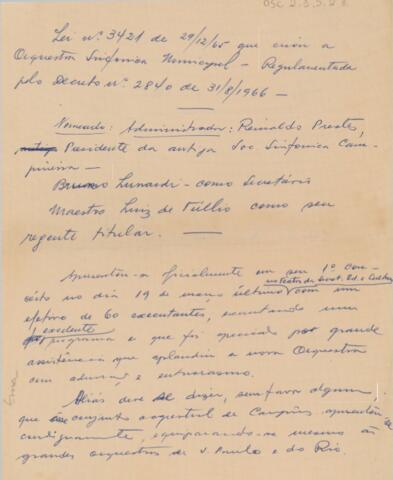 OSC 2.3.5.28
Lei nº 3421 de 29/12/65 que criou a
Orquestra Sinfonica Municipal - Regulamentada
pelo Decreto nº 2840 de 31/8/1966 -
Nomeado: Administrador: Reinaldo Prestes,
Presidente da antiga Soc Sinfonica Cam-
pineira -
Bruno Lunardi - como Secretário
Maestro Luiz de Túllio como seu
regente titular.
Apresentou-se oficialmente em seu 1º con-
no Teatro da Secret. Ed. e Cultura
certo no dia 19 de março último com um
efetivo de 60 executantes, executando um
excelente
programa e que foi apreciado por grande
assistência que aplaudiu a nova Orquestra
com admiração e entusiasmo.
Aliás deve se dizer, sem favor algum,
que esse conjunto orquestral de Campinas apresentou-se
condignamente, equiparando-se mesmo às
grandes orquestras de S. Paulo e do Rio.